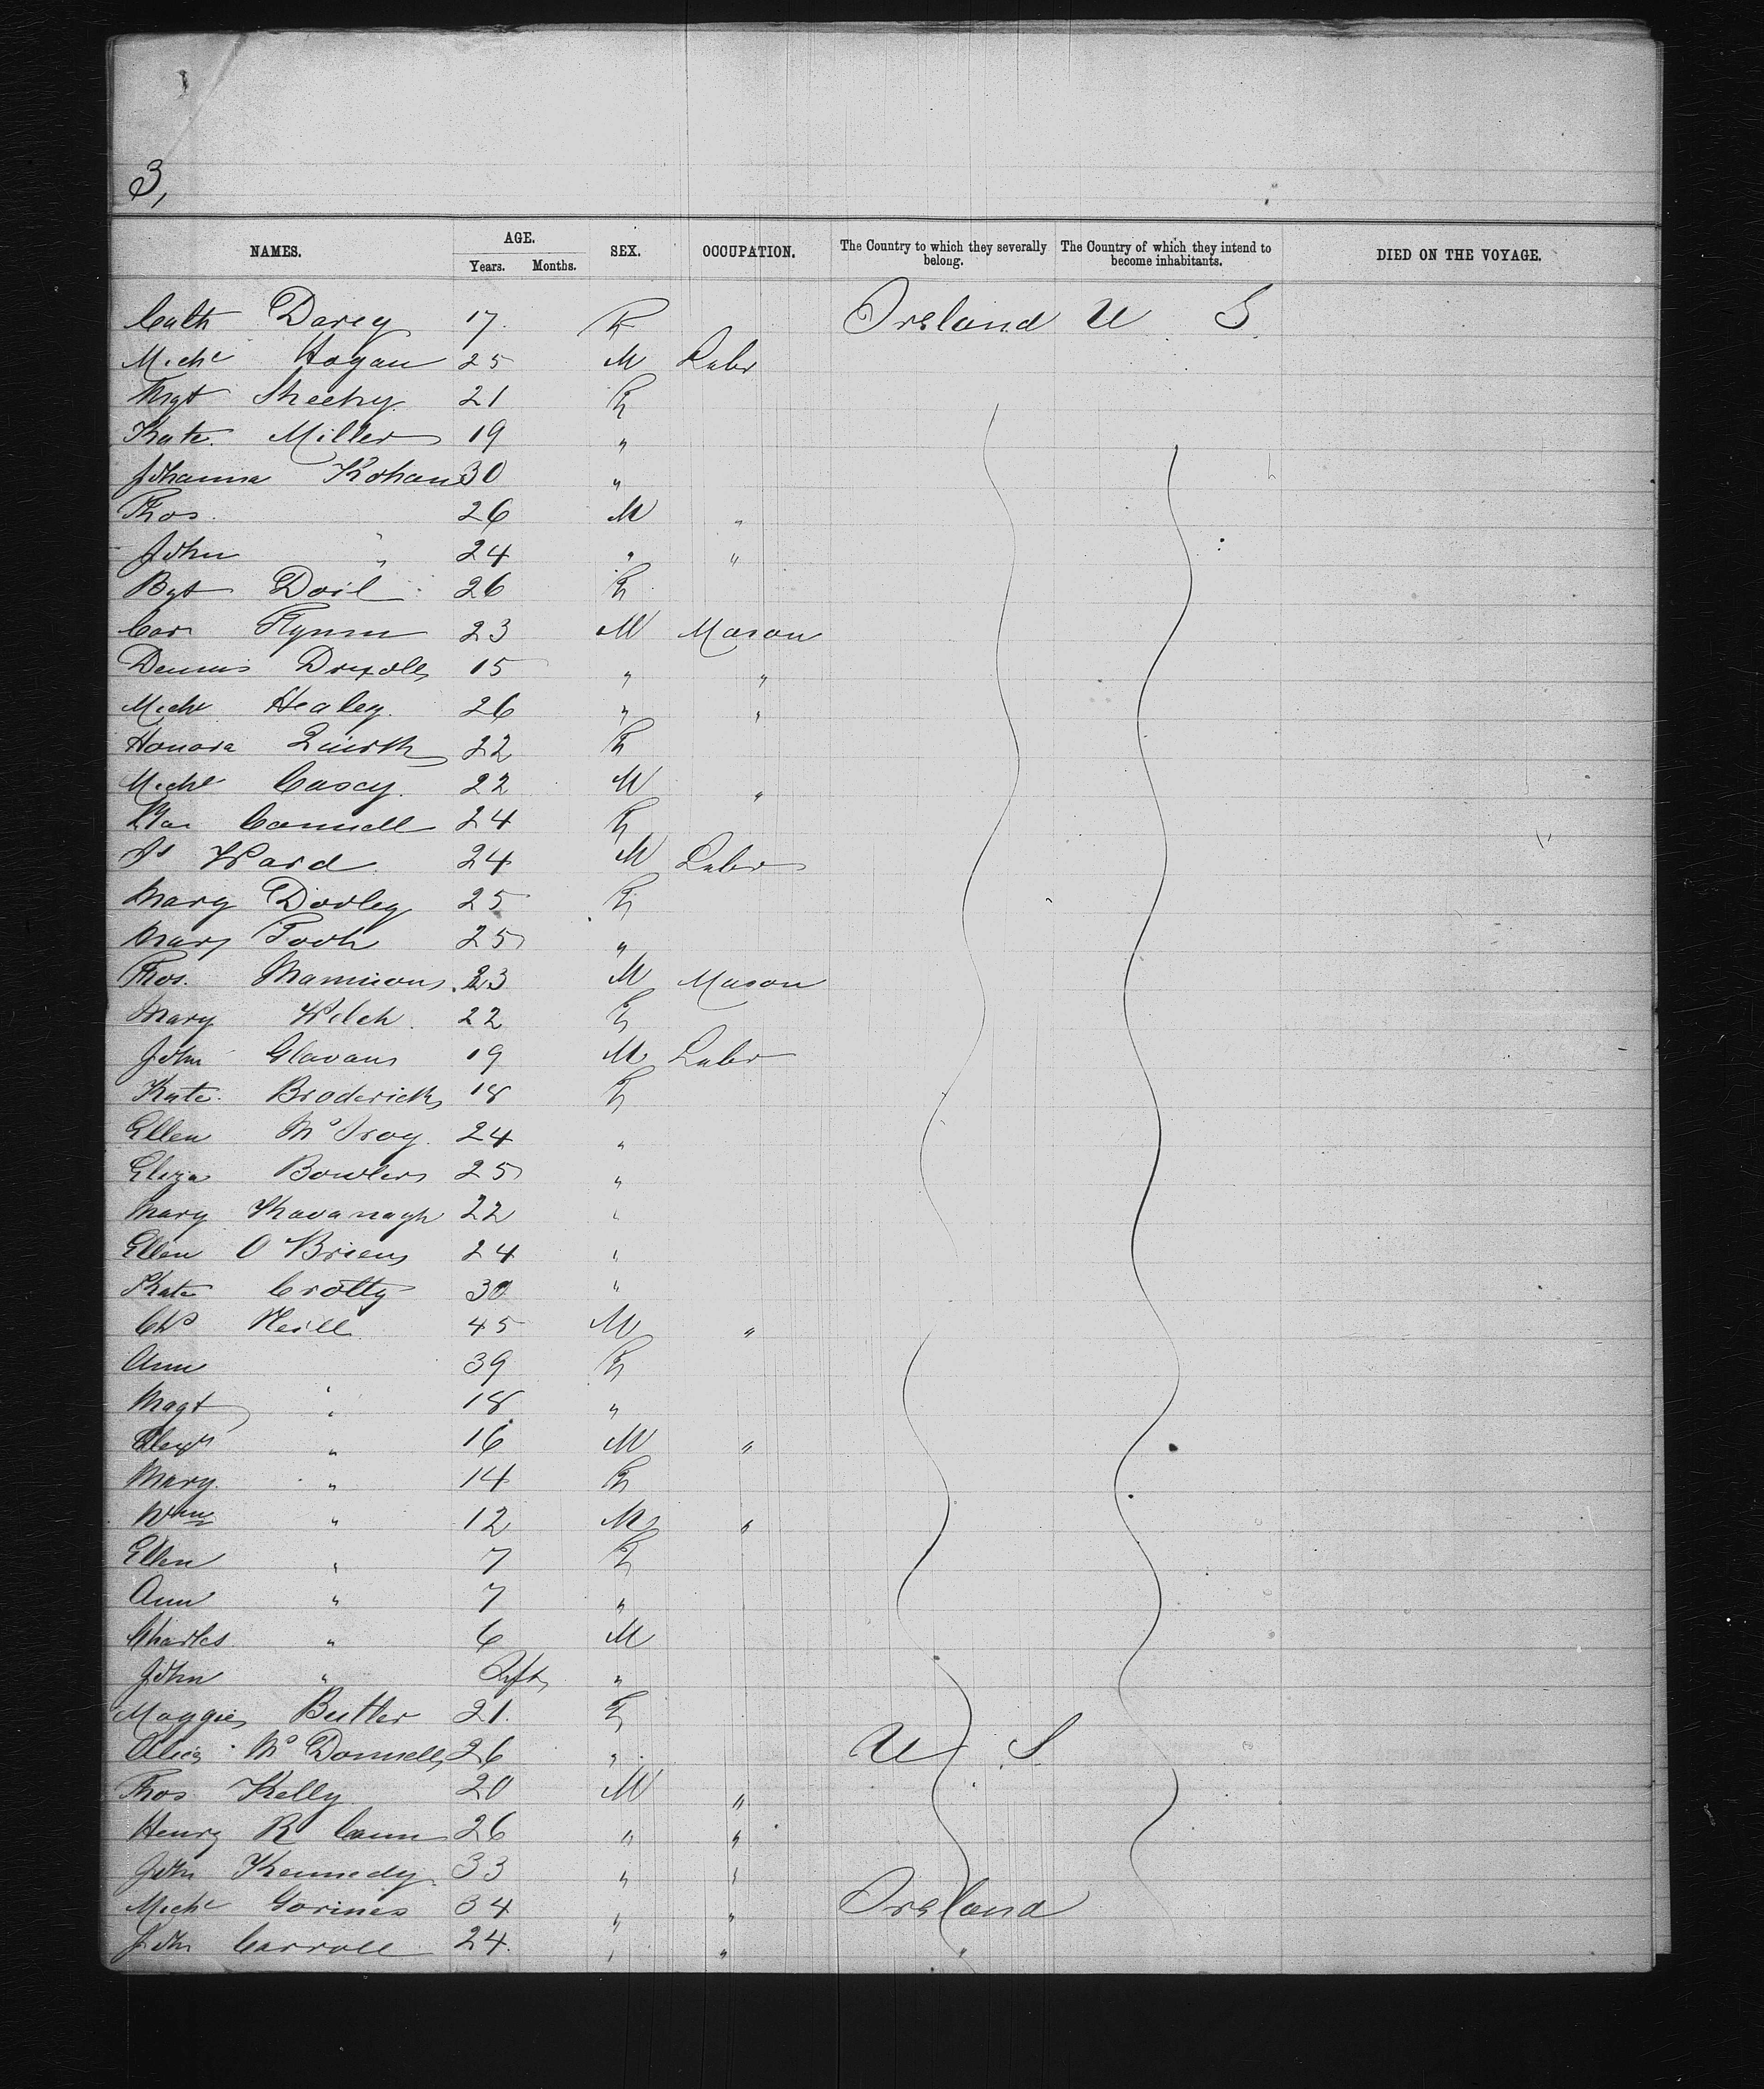 3,
NAMES. AGE. Years. Months. SEX. OCCUPATION. The Country to which they severally belong. The Country of which they intend to become inhabitants. DIED ON THE VOYAGE.
Cath Darcy 17 F Ireland U S
Michl Hogan 25 M Labr
Mgt Sheehy 21 F
Kate Miller 19 "
Johanna Kohane 30 "
Thos 26 M "
John " 24 " "
Bgt Doil 26 F
Cor Flynn 23 M Mason
Dennis 15 " "
Michl Healey 26 " "
Honora Quirk 22 F
Michl Casey 22 M "
Connell 24 F
Js Ward 24 M Labr
Mary Dooley 25 F
Mary 25 "
Thos. Mannions 23 M Mason
Mary Welch 22 F
John Glavans 19 M Labr
Kate Broderick 18 F
Ellen 24 "
Eliza Bowlers 25 "
Mary Kavanagh 22 "
Ellen O'Brien 24 "
Kate Crotty 30 "
Chs Neill 45 M "
Ann 39 F
Magt " 18 "
Alexr " 16 M "
Mary " 14 F
Wm " 12 M "
Ellen " 7 F
Ann " 7 "
Charles " 6 M
John " Inft "
Maggie Butler 21 F
Alice McDonnell 26 " U S
Thos Kelly 20 M "
Henry R Cann 26 " "
John Kennedy 33 " "
Michl 34 " " Ireland
John Carroll 24 " " "